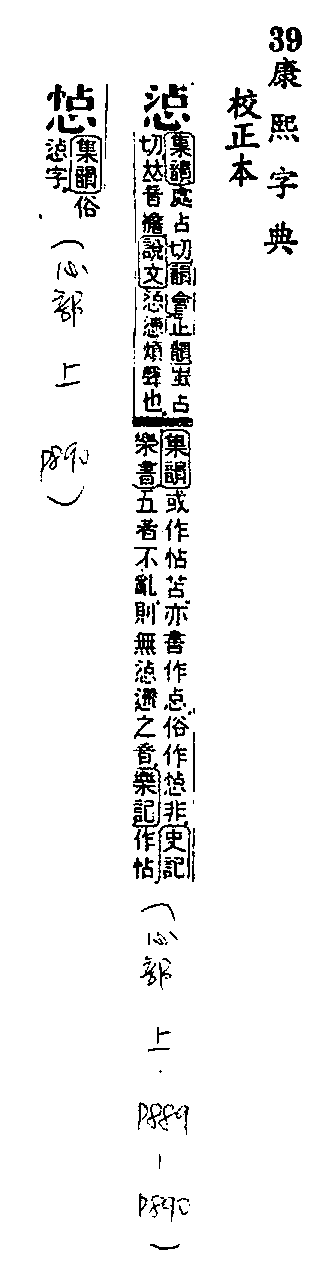 39康熙字典
校正本
惉
集韻處占切韻會正韻蚩占
切𠀤音襜說文惉懘煩聲也
集韻或作怗苫亦書作俗作非史記
樂書五者不亂則無惉懘之音樂記作怗
(心部 上·P889-P890)
集韻俗
惉字
(心部 上 P890)